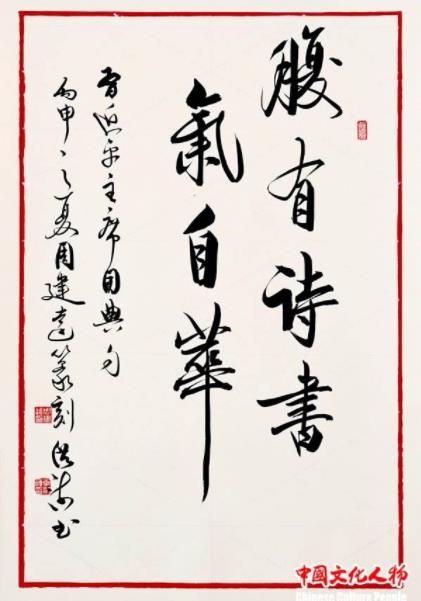 腹有詩書
氣自華
習近平主席用典句
丙申之夏周建遠篆刻 書
中國文化人物
Chinese Culture People